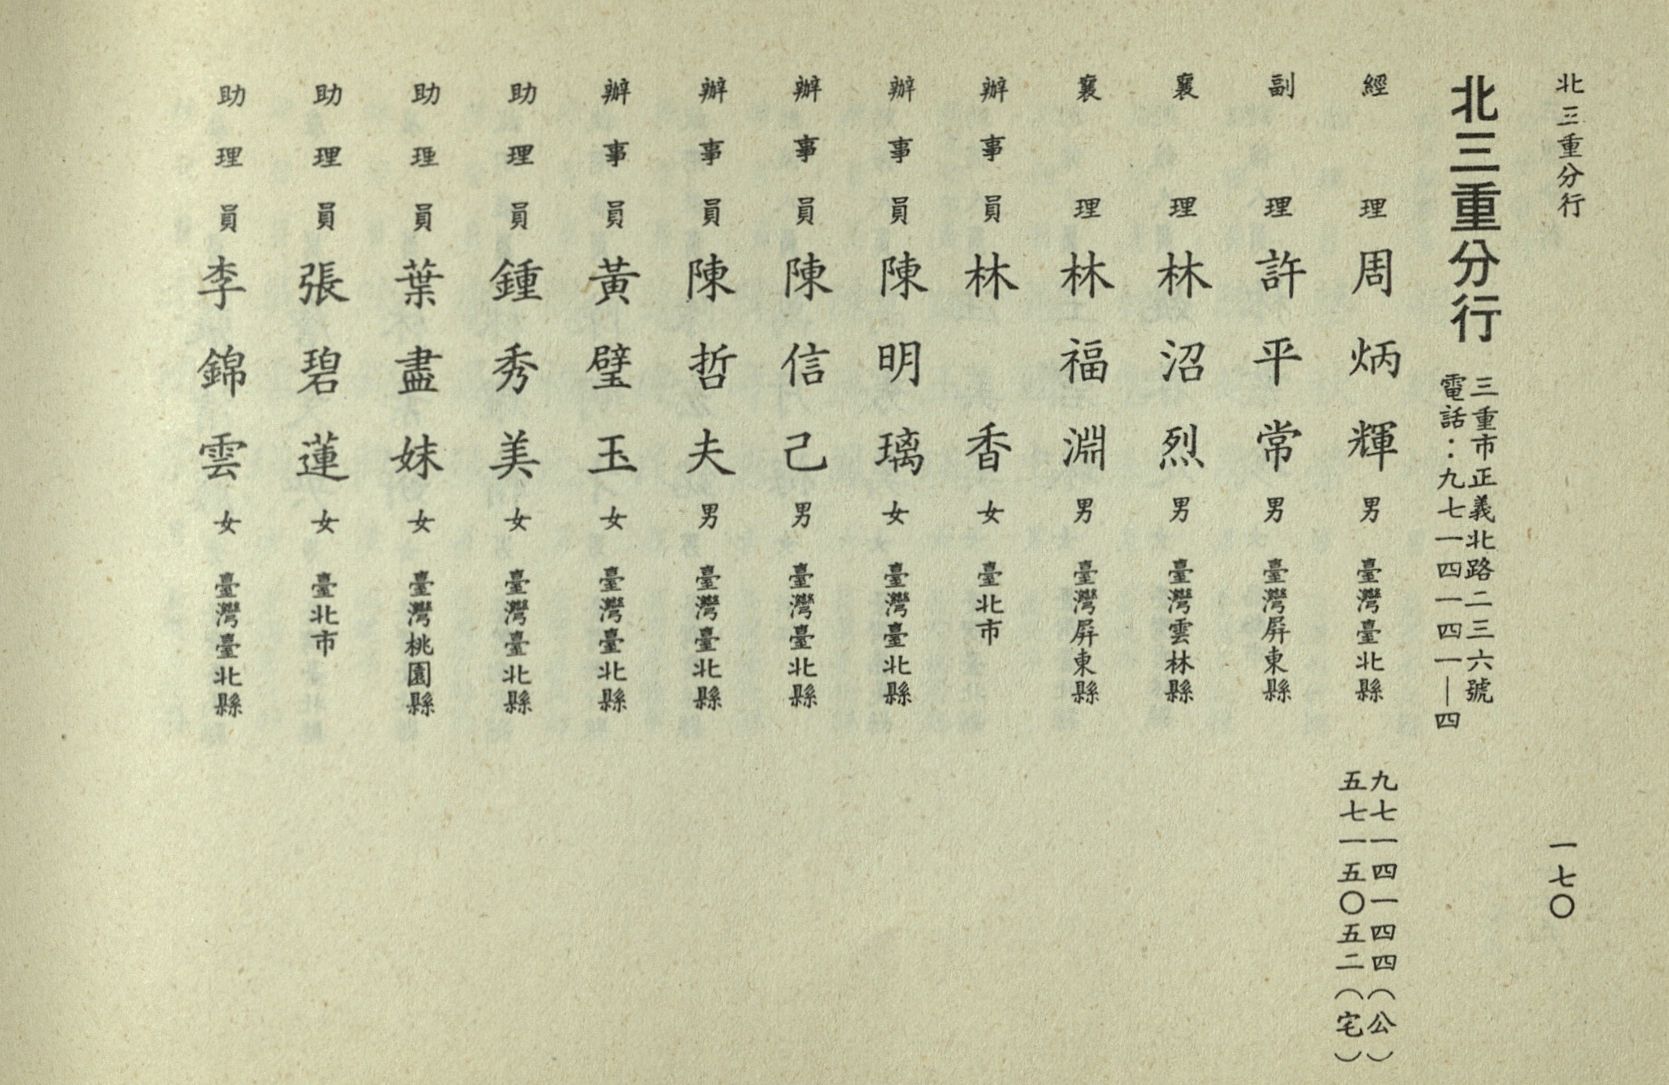 北三重分行
一七〇
北三重分行
三重市正義北路二三六號
電話：九七一四一四一—四
經理 周炳輝 男 臺灣臺北縣
九七一四一四四（公）
五七一五〇五二（宅）
副理 許平常 男 臺灣屏東縣
襄理 林沼烈 男 臺灣雲林縣
襄理 林福淵 男 臺灣屏東縣
辦事員 林香 女 臺北市
辦事員 陳明璃 女 臺灣臺北縣
辦事員 陳信己 男 臺灣臺北縣
辦事員 陳哲夫 男 臺灣臺北縣
辦事員 黃璧玉 女 臺灣臺北縣
助理員 鍾秀美 女 臺灣臺北縣
助理員 葉盡妹 女 臺灣桃園縣
助理員 張碧蓮 女 臺北市
助理員 李錦雲 女 臺灣臺北縣